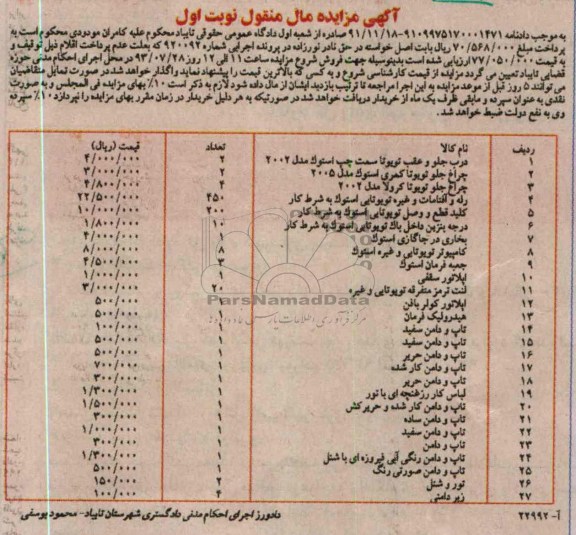 آگهی مزایده مال منقول نوبت اول
به موجب دادنامه ۹۱۰۹۹۷۵۱۷۰۰۰۱۴۷۱-۹۱/۱۱/۱۸ صادره از شعبه اول دادگاه عمومی حقوقی تایباد محکوم علیه کامران مودودی محکوم است به
پرداخت مبلغ ۷۰/۵۶۸/۰۰۰ ریال بابت اصل خواسته در حق نادر نورزاده در پرونده اجرایی شماره ۹۲۰۰۹۲ که بعلت عدم پرداخت اقلام ذیل توقیف و
به قیمت ۷۷/۰۵۰/۰۰۰ ارزیابی شده است بدینوسیله جهت فروش شروع مزایده ساعت ۱۱ الی ۱۲ روز ۹۳/۰۷/۲۸ در محل اجرای احکام مدنی حوزه
قضایی تایباد تعیین می گردد مزایده از قیمت کارشناسی شروع و به کسی که بالاترین قیمت را پیشنهاد نماید واگذار خواهد شد. در صورت تمایل متقاضیان
می توانند ۵ روز قبل از موعد مزایده به این اجرا مراجعه تا ترتیب بازدید ایشان از مال داده شود لازم به ذکر است ۱۰٪ بهای مزایده فی المجلس و به صورت
نقدی به عنوان سپرده و مابقی ظرف یک ماه از خریدار دریافت خواهد شد در صورتیکه به هر دلیل خریدار در زمان مقرر بهای مزایده را نپردازد ۱۰٪ سپرده
وی به نفع دولت ضبط خواهد شد.
ردیف نام کالا تعداد قیمت (ریال)
۱ درب جلو و عقب تویوتا سمت چپ استوک مدل ۲۰۰۲ ۲ ۴/۰۰۰/۰۰۰
۲ چراغ جلو تویوتا کمری استوک مدل ۲۰۰۵ ۲ ۳/۰۰۰/۰۰۰
۳ چراغ جلو تویوتا کرولا مدل ۲۰۰۲ ۴ ۴/۸۰۰/۰۰۰
۴ رله و آفتامات و غیره تویوتایی استوک به شرط کار ۴۵۰ ۲۲/۵۰۰/۰۰۰
۵ کلید قطع و وصل تویوتایی استوک به شرط کار ۲۰۰ ۱۰/۰۰۰/۰۰۰
۶ درجه بنزین داخل باک تویوتایی استوک به شرط کار ۱۰ ۱/۸۰۰/۰۰۰
۷ بخاری در جاگازی استوک ۴/۰۰۰/۰۰۰
۸ کامپیوتر تویوتایی و غیره استوک ۸ ۸/۰۰۰/۰۰۰
۹ جعبه فرمان استوک ۳ ۴/۵۰۰/۰۰۰
۱۰ اپلاتور سقفی ۱ ۱/۰۰۰/۰۰۰
۱۱ لنت ترمز متفرقه تویوتایی و غیره ۲۰ ۳/۰۰۰/۰۰۰
۱۲ اپلاتور کولر بافن ۱ ۵۰۰/۰۰۰
۱۳ هیدرولیک فرمان ۱ ۵۰۰/۰۰۰
۱۴ تاپ و دامن سفید ۱ ۱۰۰/۰۰۰
۱۵ تاپ و دامن سفید ۱ ۵۰۰/۰۰۰
۱۶ تاپ و دامن حریر ۱ ۵۰۰/۰۰۰
۱۷ تاپ و دامن کار شده ۱ ۷۰۰/۰۰۰
۱۸ تاپ و دامن حریر ۱ ۳۰۰/۰۰۰
۱۹ لباس کار رزغنچه ای با تور ۱ ۱/۳۰۰/۰۰۰
۲۰ تاپ و دامن کار شده و حریرکش ۱ ۱/۵۰۰/۰۰۰
۲۱ تاپ و دامن ساده ۱ ۳۰۰/۰۰۰
۲۲ تاپ و دامن سفید ۱ ۱/۰۰۰/۰۰۰
۲۳ تاپ و دامن ۱ ۳۰۰/۰۰۰
۲۴ تاپ و دامن رنگی آبی فیروزه ای با شنل ۱ ۱/۳۰۰/۰۰۰
۲۵ تاپ و دامن صورتی رنگ ۱ ۵۰۰/۰۰۰
۲۶ تور و شنل ۲ ۱۵۰/۰۰۰
۲۷ زیر دامنی ۴ ۱۰۰/۰۰۰
ParsNamadData
آ- ۲۲۹۹۲ دادورز اجرای احکام مدنی دادگستری شهرستان تایباد- محمود یوسفی